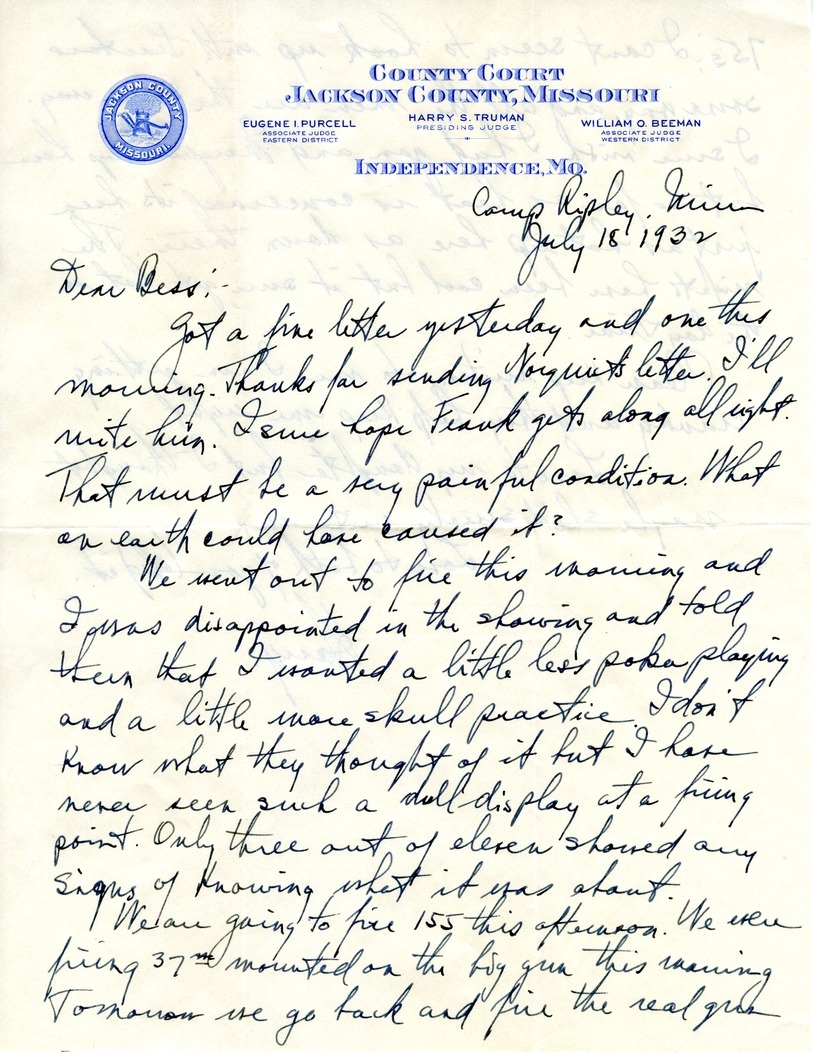 JACKSON COUNTY
MISSOURI
COUNTY COURT
JACKSON COUNTY, MISSOURI
EUGENE I. PURCELL
ASSOCIATE JUDGE
EASTERN DISTRICT
HARRY S. TRUMAN
PRESIDING JUDGE
WILLIAM O. BEEMAN
ASSOCIATE JUDGE
WESTERN DISTRICT
INDEPENDENCE, MO.
Camp Ripley, Minn
July 18 1932
Dear Bess:-
Got a fine letter yesterday and one this
morning. Thanks for sending Norquist's letter. I'll
write him. I sure hope Frank gets along all right.
That must be a very painful condition. What
on earth could have caused it?
We went out to fire this morning and
I was disappointed in the showing and told
them that I wanted a little less poker playing
and a little more skull practice. I don't
know what they thought of it but I have
never seen such a dull display at a firing
point. Only three out of eleven showed any
signs of knowing what it was about.
We are going to fire 155 this afternoon. We were
firing 37mm mounted on the big gun this morning
Tomorrow we go back and fire the real gun